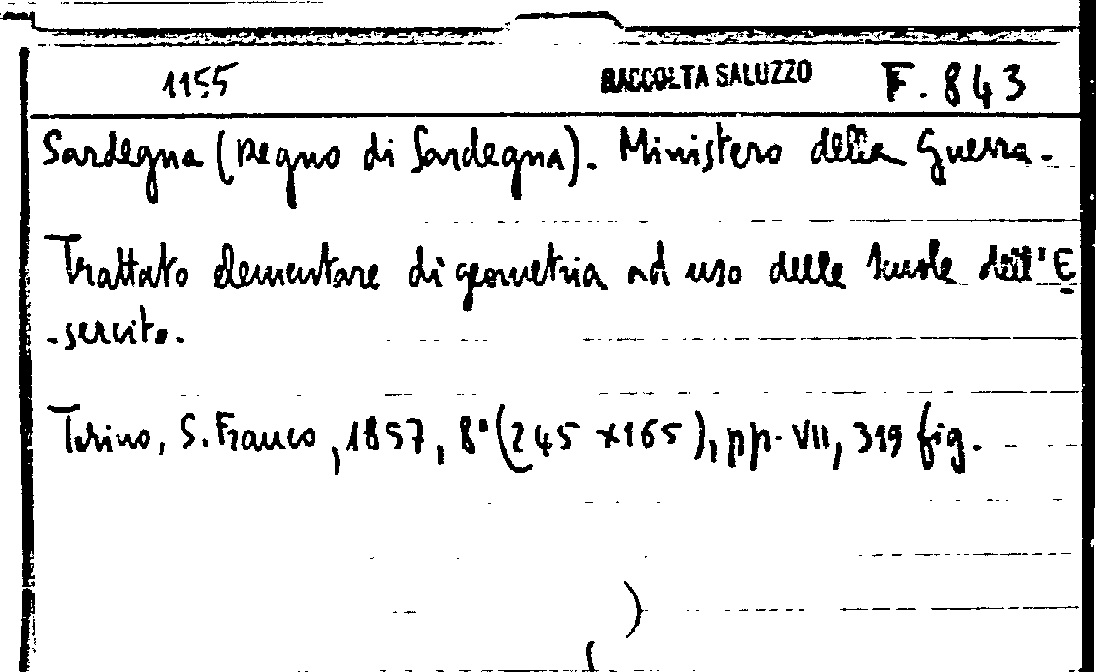 1155 RACCOLTA SALUZZO F. 843
Sardegna (Regno di Sardegna). Ministero della Guerra.
Trattato elementare di geometria ad uso delle Scuole dell'E
-sercito.
Torino, S. Franco, 1857, 8° (245 x165), pp. VII, 319 fig.